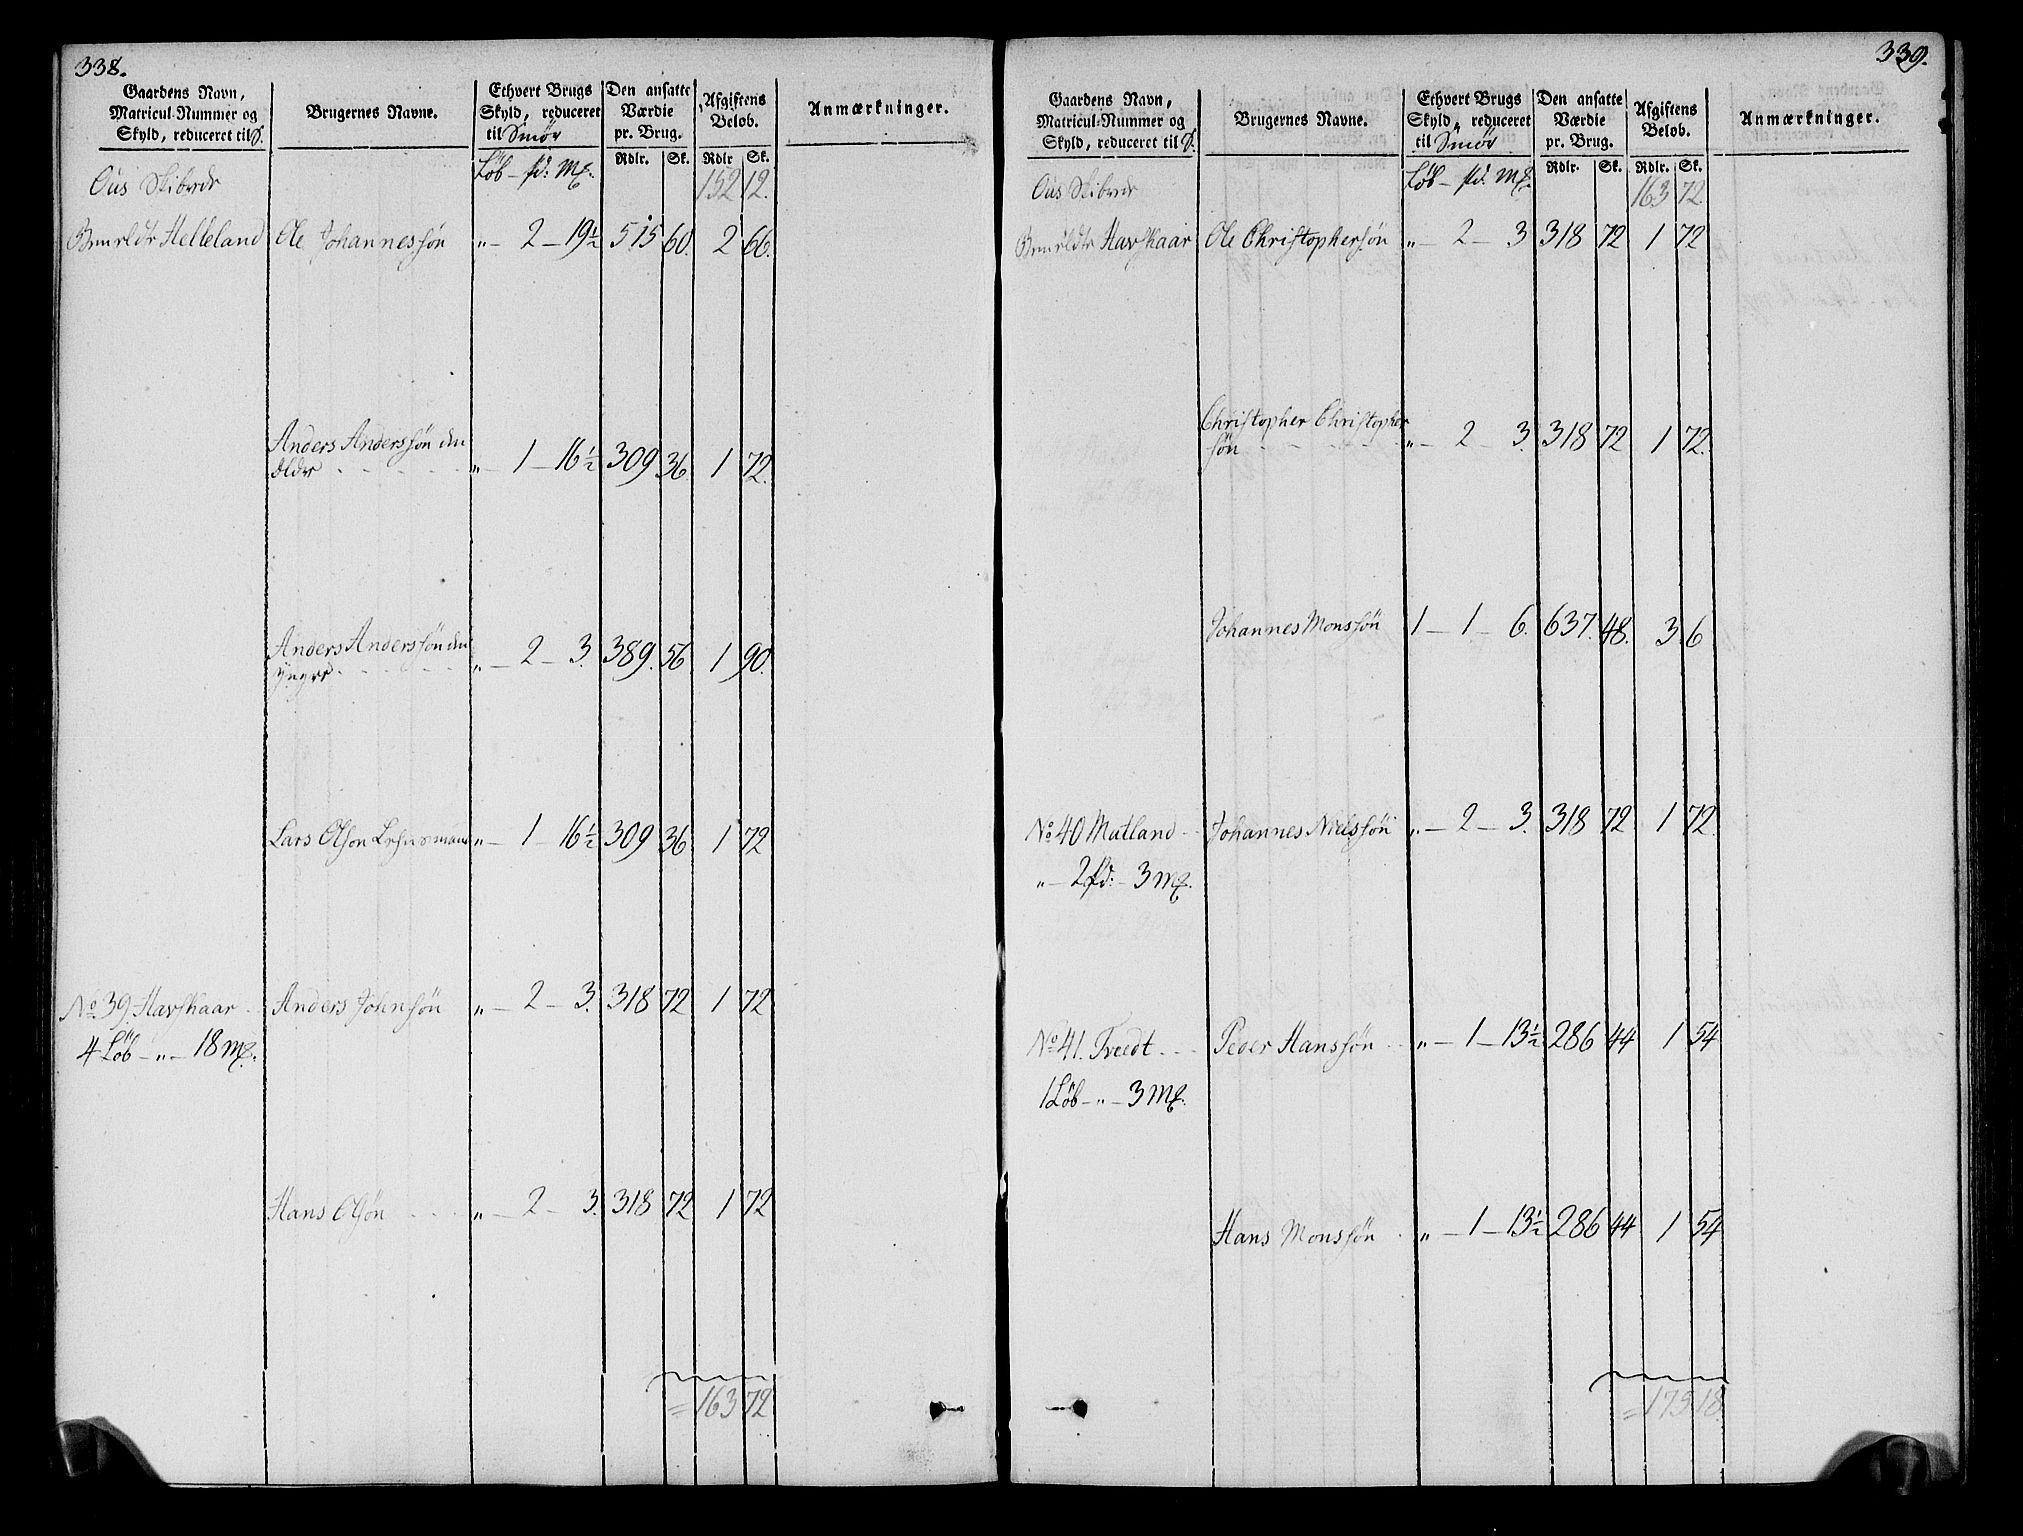 338.
Gaardens Navn, Matricul-Nummer og Skyld, reduceret til S.
Brugernes Navne.
Ethvert Brugs Skyld, reduceret til Smör
Den ansatte Værdie pr. Brug.
Afgiftens Beløb.
Anmærkninger.
Løb — pd: M&.
Rdlr. Sk. Rdlr Sk.
Ous Skibrede 152 12.
Helleland Ole Johannessøn „ — 2 — 19½ 515 60. 2 66.
Anders Anderssøn den
ældre „ — 1 — 16½ 309 36. 1 72.
Anders Anderssøn den
yngre „ — 2 — 3. 389. 56 1 90.
Lars Olson Lehnsmand „ — 1 — 16½ 309 36 1 72
No 39. Havskaar Anders Johnsøn „ — 2 — 3. 318 72 1 72
4 Løb — „ — 18 M&.
Hans Olsøn „ — 2 — 3. 318 72 1 72
= 163 72
339.
Gaardens Navn, Matricul-Nummer og Skyld, reduceret til S.
Brugernes Navne.
Ethvert Brugs Skyld, reduceret til Smör
Den ansatte Værdie pr. Brug.
Afgiftens Beløb.
Anmærkninger.
Løb — pd: M&.
Rdlr. Sk. Rdlr. Sk.
Ous Skibrede 163 72
Havskaar Ole Christophersøn „ — 2 — 3 318 72 1 72
Christopher Christopher
søn „ — 2 — 3. 318 72 1 72.
Johannes Monssøn 1 — 1 — 6. 637. 48. 3 6
No 40 Mutland Johannes Nielssøn „ — 2 — 3. 318 72 1 72.
„ — 2 pd: — 3 M&.
No 41. Tveedt Peder Hanssøn „ — 1 — 13½ 286 44 1 54
1 Løb — „ — 3 M&.
Hans Monssøn „ — 1 — 13½ 286 44 1 54
= 175 18.